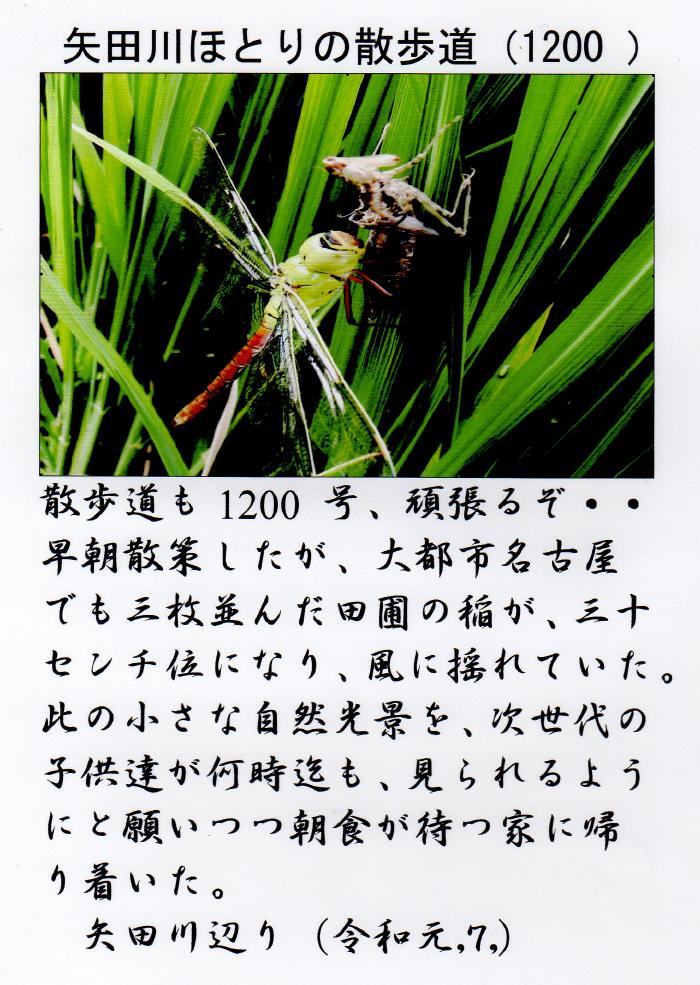 矢田川ほとりの散歩道（1200 ）
散歩道も 1200 号、頑張るぞ・・
早朝散策したが、大都市名古屋
でも三枚並んだ田圃の稲が、三十
センチ位になり、風に揺れていた。
此の小さな自然光景を、次世代の
子供達が何時迄も、見られるよう
にと願いつつ朝食が待つ家に帰
り着いた。
矢田川辺り（令和元,7,）